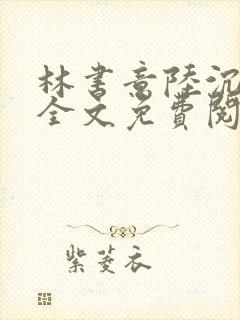 林书意陸沉
全文免費閱
紫菱衣